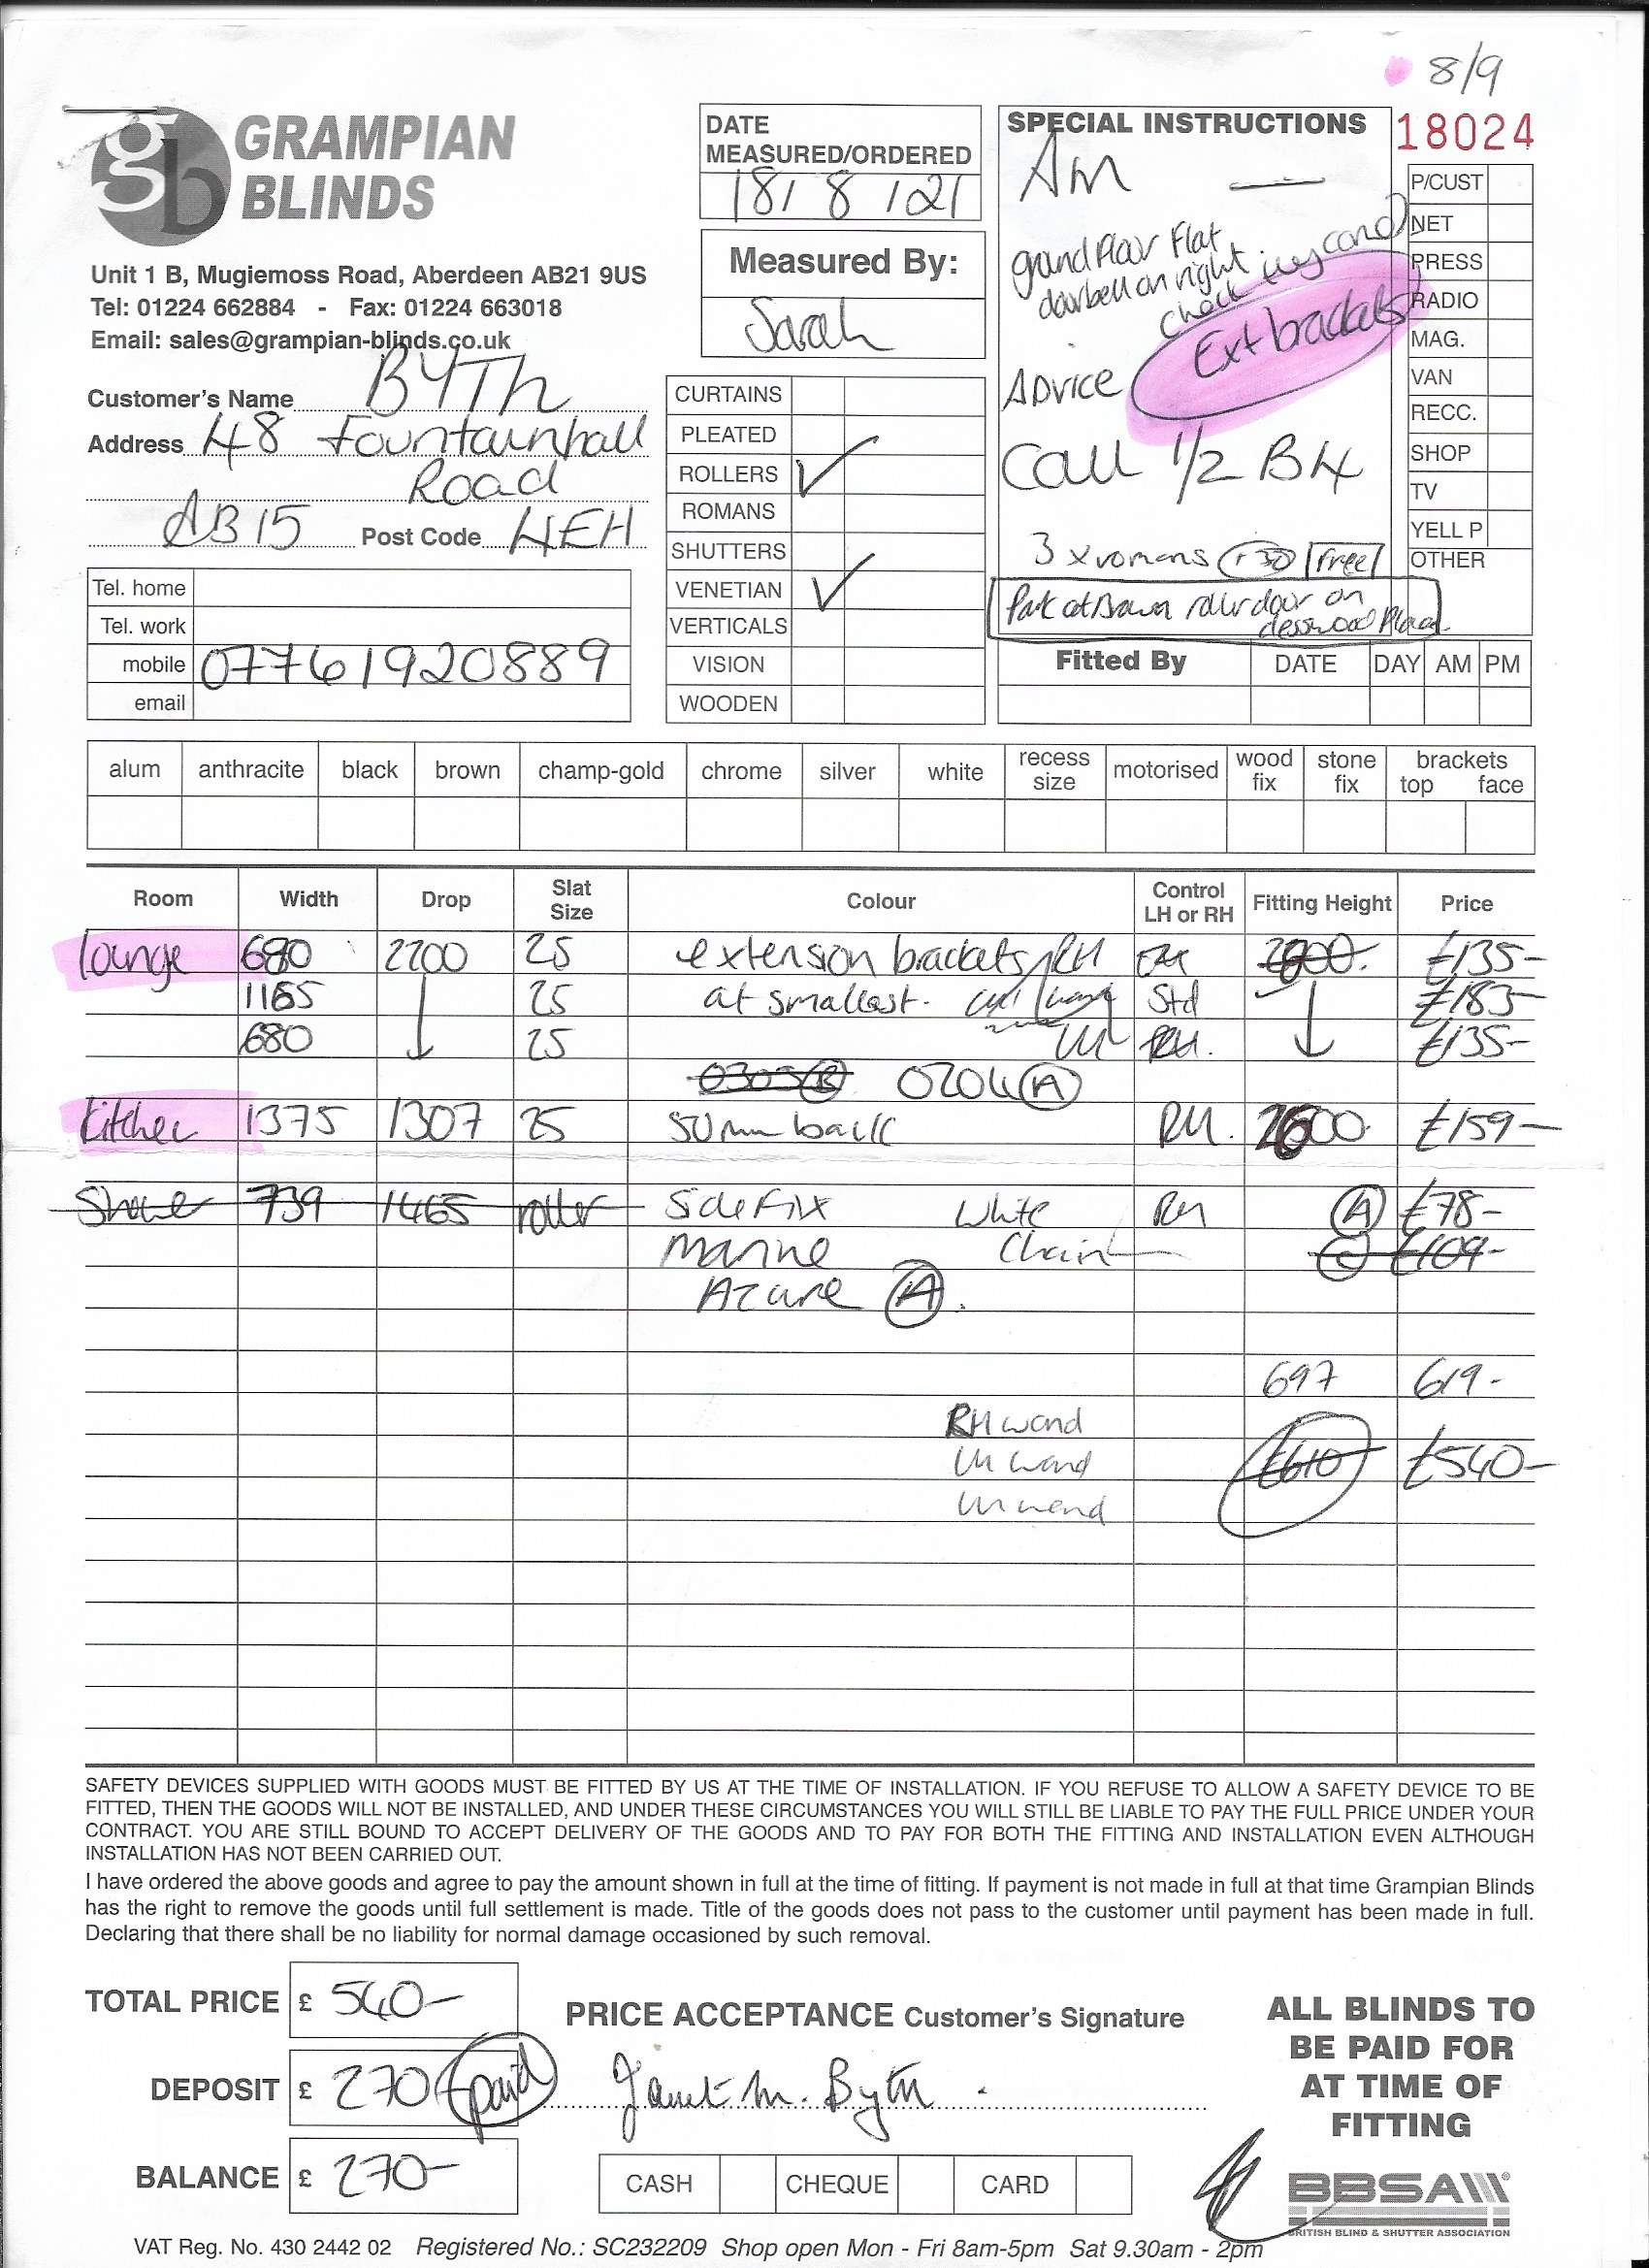 8/9
GRAMPIAN
BLINDS
Unit 1 B, Mugiemoss Road, Aberdeen AB21 9US
Tel: 01224 662884 - Fax: 01224 663018
Email: sales@grampian-blinds.co.uk
Customer's Name BYTH
Address 48 Fountainhall
Road
AB15 Post Code 4EH
Tel. home
Tel. work
mobile 07761920889
email
DATE
MEASURED/ORDERED
18/8/21
Measured By:
Sarah
CURTAINS
PLEATED
ROLLERS ✓
ROMANS
SHUTTERS
VENETIAN ✓
VERTICALS
VISION
WOODEN
SPECIAL INSTRUCTIONS
Am
ground floor Flat
doorbell on right
check
Ext brackets
Advice
Call 1/2 B4
3 x romans +30 free
Park at Brown roller door on
desswood Place
18024
P/CUST
NET
PRESS
RADIO
MAG.
VAN
RECC.
SHOP
TV
YELL P
OTHER
Fitted By DATE DAY AM PM
alum anthracite black brown champ-gold chrome silver white recess size motorised wood fix stone fix brackets top face
Room Width Drop Slat Size Colour Control LH or RH Fitting Height Price
lounge 680 2200 25 extension brackets RH £135-
1165 25 at smallest. Std £183-
680 25 LH RH. £135-
0305 B 0204 A
kitchen 1375 1307 25 50mm back RH. 2600 £159-
Shower 739 1465 roller Side Fix White RH A £78-
Marine Chain C £109-
Azure A.
697 619-
RH wand
LH wand £610 £540-
LH wand
SAFETY DEVICES SUPPLIED WITH GOODS MUST BE FITTED BY US AT THE TIME OF INSTALLATION. IF YOU REFUSE TO ALLOW A SAFETY DEVICE TO BE
FITTED, THEN THE GOODS WILL NOT BE INSTALLED, AND UNDER THESE CIRCUMSTANCES YOU WILL STILL BE LIABLE TO PAY THE FULL PRICE UNDER YOUR
CONTRACT. YOU ARE STILL BOUND TO ACCEPT DELIVERY OF THE GOODS AND TO PAY FOR BOTH THE FITTING AND INSTALLATION EVEN ALTHOUGH
INSTALLATION HAS NOT BEEN CARRIED OUT.
I have ordered the above goods and agree to pay the amount shown in full at the time of fitting. If payment is not made in full at that time Grampian Blinds
has the right to remove the goods until full settlement is made. Title of the goods does not pass to the customer until payment has been made in full.
Declaring that there shall be no liability for normal damage occasioned by such removal.
TOTAL PRICE £ 540-
DEPOSIT £ 270 paid
BALANCE £ 270-
PRICE ACCEPTANCE Customer's Signature
Janet M. Byth
CASH CHEQUE CARD
ALL BLINDS TO
BE PAID FOR
AT TIME OF
FITTING
BBSA
BRITISH BLIND & SHUTTER ASSOCIATION
VAT Reg. No. 430 2442 02 Registered No.: SC232209 Shop open Mon - Fri 8am-5pm Sat 9.30am - 2pm